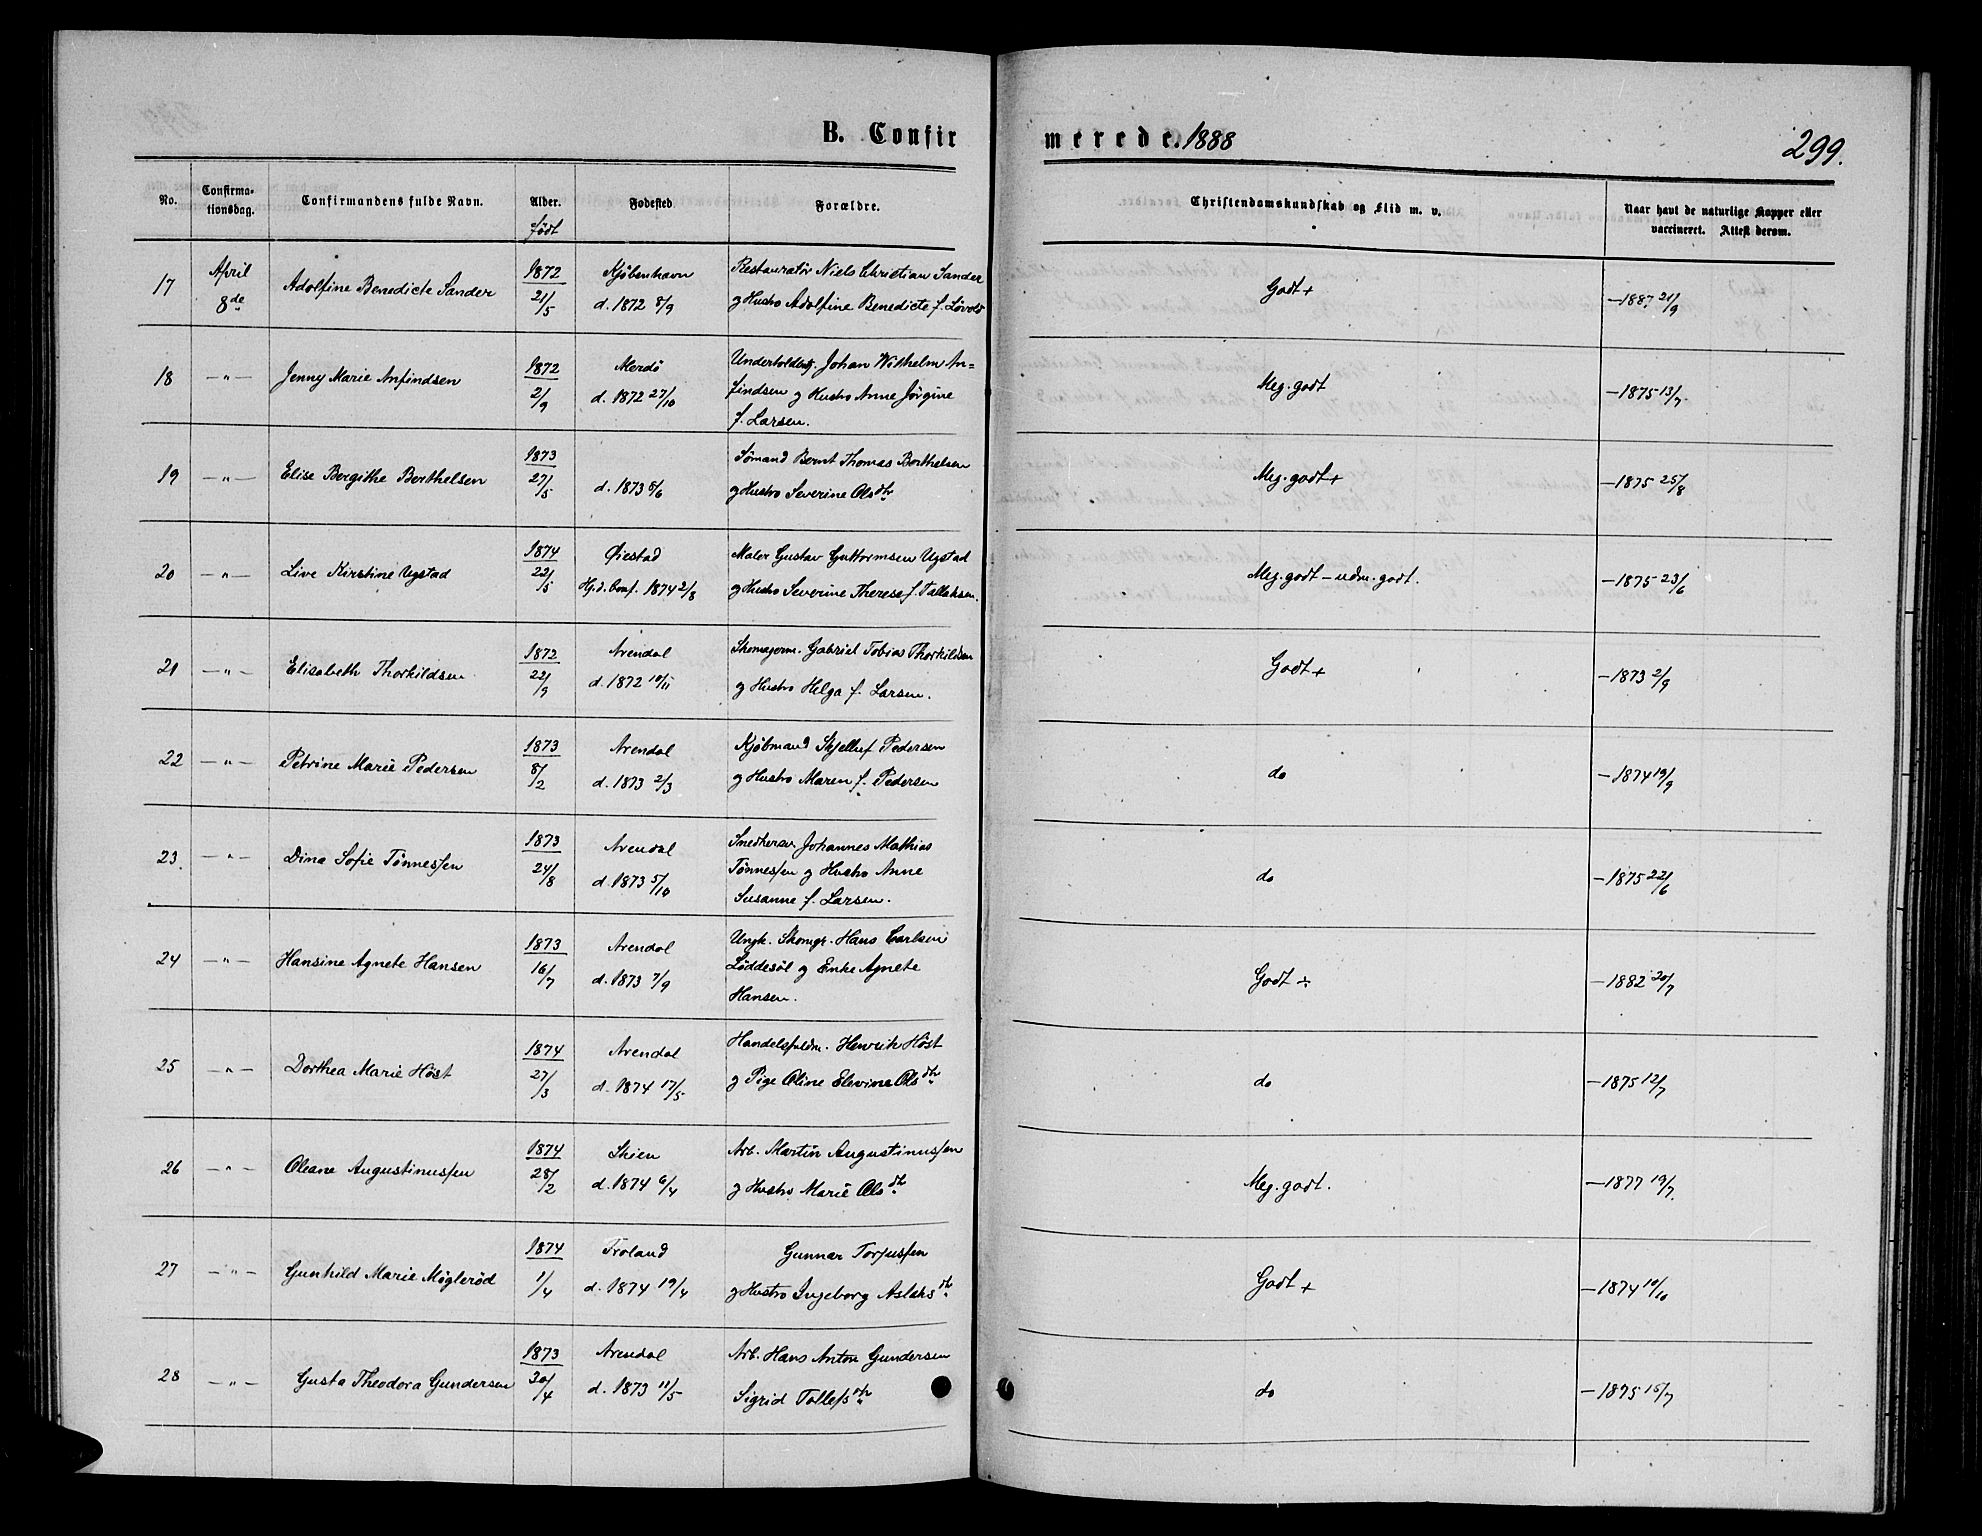 B. Confirmerede. 1888
299.
No. | Confirmationsdag. | Confirmandens fulde Navn. | Alder. født | Fødested. | Forældre. | Christendomskundskab og Flid m. v. | Naar havt de naturlige Kopper eller vaccineret. Attest derom.
17 | April 8de | Adolfine Benedicte Sander | 1872 21/5 | Kjøbenhavn d. 1872 8/9 | Restauratør Niels Christian Sander g Hustro Adolfine Benedicte f. Løvold | Godt + | — 1887 21/9
18 | — " — | Jenny Marie Anfindsen | 1872 2/9 | Merdø d. 1872 27/10 | Underholdng. Johan Wilhelm An= findsen g Hustro Anne Jørgine f. Larsen. | Meg. godt | — 1875 13/7.
19 | — " — | Elise Bergithe Berthelsen | 1873 27/5 | d. 1873 5/6 | Sømand Bernt Thomas Berthelsen g Hustro Severine Olsdtr | Meg. godt + | — 1875 25/8
20 | — " — | Live Kirstine Ugstad | 1874 22/5 | Øiestad Hj.d. Conf. 1874 2/8 | Maler Gustav Guttormsen Ugstad g Hustro Severine Therese f. Tallaksen. | Meg. godt – udm. godt. | — 1875 23/6
21 | — " — | Elisabeth Thorkildsen | 1872 22/9 | Arendal d. 1872 10/11 | Skomagerm. Gabriel Tobias Thorkildsen g Hustro Helga f. Larsen. | Godt + | — 1873 2/9
22 | — " — | Petrine Marie Pedersen | 1873 8/2 | Arendal d. 1873 2/3 | Kjøbmand Skjelluf Pedersen g Hustro Maren f. Pedersen | do | — 1874 19/9
23 | — " — | Dina Sofie Tønnesen | 1873 24/8 | Arendal d. 1873 5/10 | Snedkersv. Johannes Mathias Tønnessen g Hustro Anne Susanne f. Larsen. | do | — 1875 22/6
24 | — " — | Hansine Agnete Hansen | 1873 16/7 | Arendal d. 1873 7/9 | Ungk. Skomgr. Hans Carlsen Løddesøl g Enke Agnete Hansen. | Godt ÷ | — 1882 20/7
25 | — " — | Dorthea Marie Høst | 1874 27/3 | Arendal d. 1874 17/5 | Handelsfuldm. Henrik Høst g Pige Oline Elevine Olsdtr | do | — 1875 12/7
26 | — " — | Oleane Augustinussen | 1874 28/2 | Skien d. 1874 6/4 | Arb. Martin Augustinussen g Hustro Marie Olsdtr | Meg. godt. | — 1877 19/7
27 | — " — | Gunhild Marie Møglerød | 1874 11/4 | Froland d. 1874 19/4 | Gunnar Torjussen g Hustro Ingeborg Aslaksdtr | Godt + | — 1874 10/10
28 | — " — | Gusta Theodora Gundersen | 1873 30/4 | Arendal d. 1873 11/5 | Arb. Hans Anton Gundersen Sigrid Tollefsdtr | do | — 1875 15/7